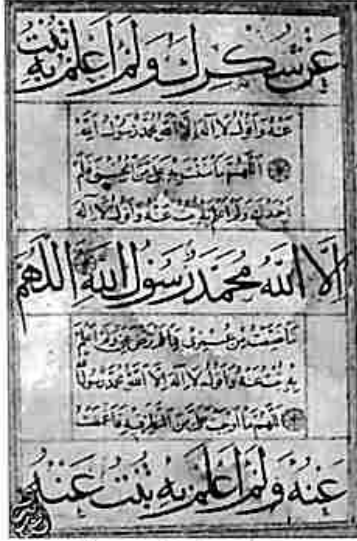 عَنْ شُكْرِكَ وَلَمْ اَعْلَمْ بِهِ تُبْتُ
عَنْهُ وَاَقُولُ لَا اِلٰهَ اِلَّا اللّٰهُ مُحَمَّدٌ رَسُولُ اللّٰهِ
اَللّٰهُمَّ مَا مَنَنْتَ بِهِ عَلَىَّ مِنْ فَلَمْ
وَلَمْ اَعْلَمْ بِهِ تُبْتُ عَنْهُ وَاَقُولُ لَا اِلٰهَ
اِلَّا اللّٰهُ مُحَمَّدٌ رَسُولُ اللّٰهِ اَللّٰهُمَّ
مَا مِنْ عُمْرِى وَلَمْ اَعْلَمْ
بِهِ تُبْتُ عَنْهُ وَاَقُولُ لَا اِلٰهَ اِلَّا اللّٰهُ مُحَمَّدٌ رَسُولُ
اَللّٰهُمَّ مَا عَلَىَّ مِنَ النَّظَرِ فِيهِ
عَنْهُ وَلَمْ اَعْلَمْ بِهِ تُبْتُ عَنْهُ